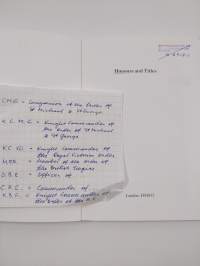 Honours and Titles
CMG = Companion of the Order of
St Michael & St George
K.C.M.G = Knight Commander of
the Order of St Michael
& St George
KCVO = Knight Commander of
the Royal Victorian Order
MBE = Member of the Order of
the British Empire
O.B.E = Officer of
C.B.E. = Commander of
K.B.E. = Knight Commander of
the Order of the B.E.
London: HMSO